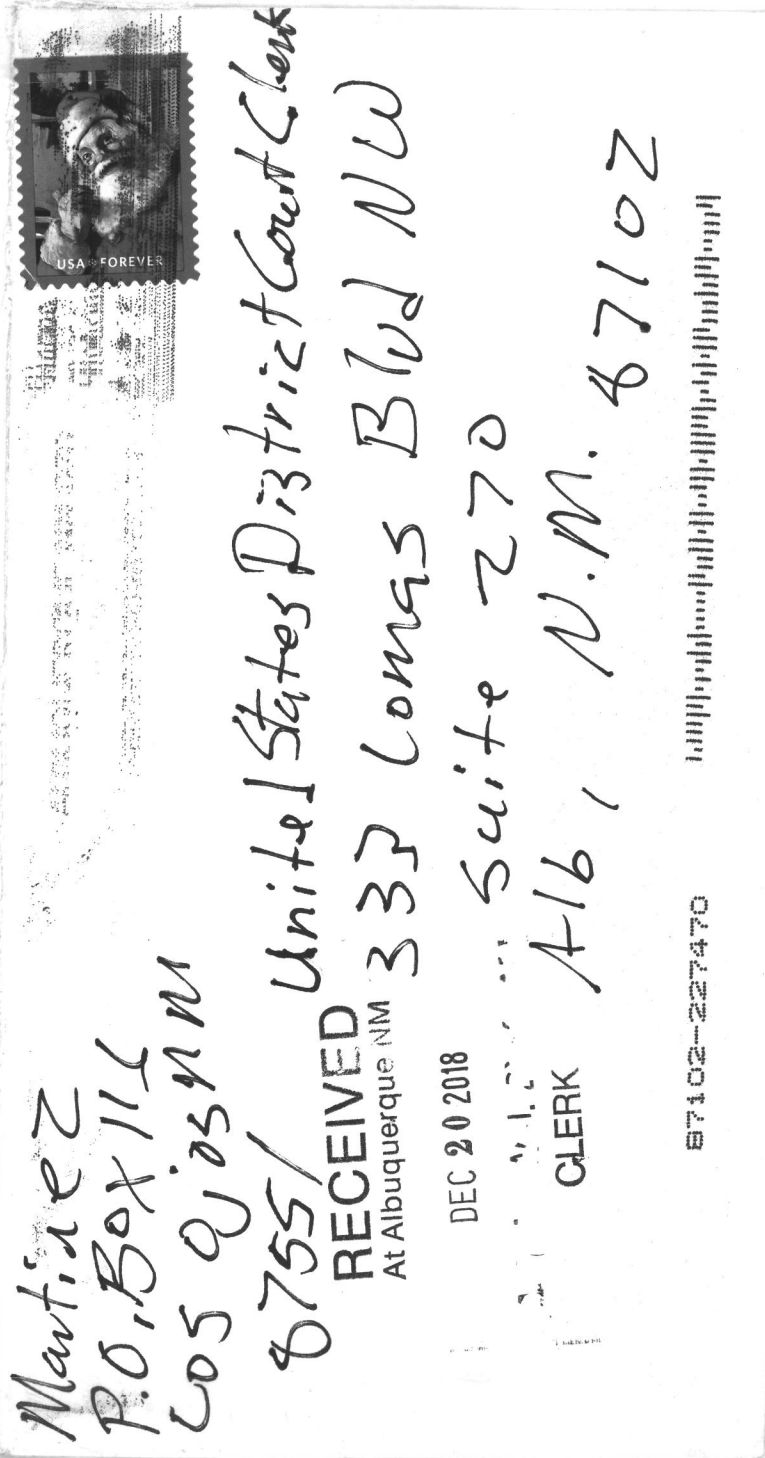 Martinez
P.O. Box 116
Los Ojos NM
87551
USA FOREVER
United States District Court Clerk
333 Lomas Blvd NW
Suite 270
Alb, N.M. 87102
RECEIVED
At Albuquerque NM
DEC 20 2018
CLERK
87102-227470